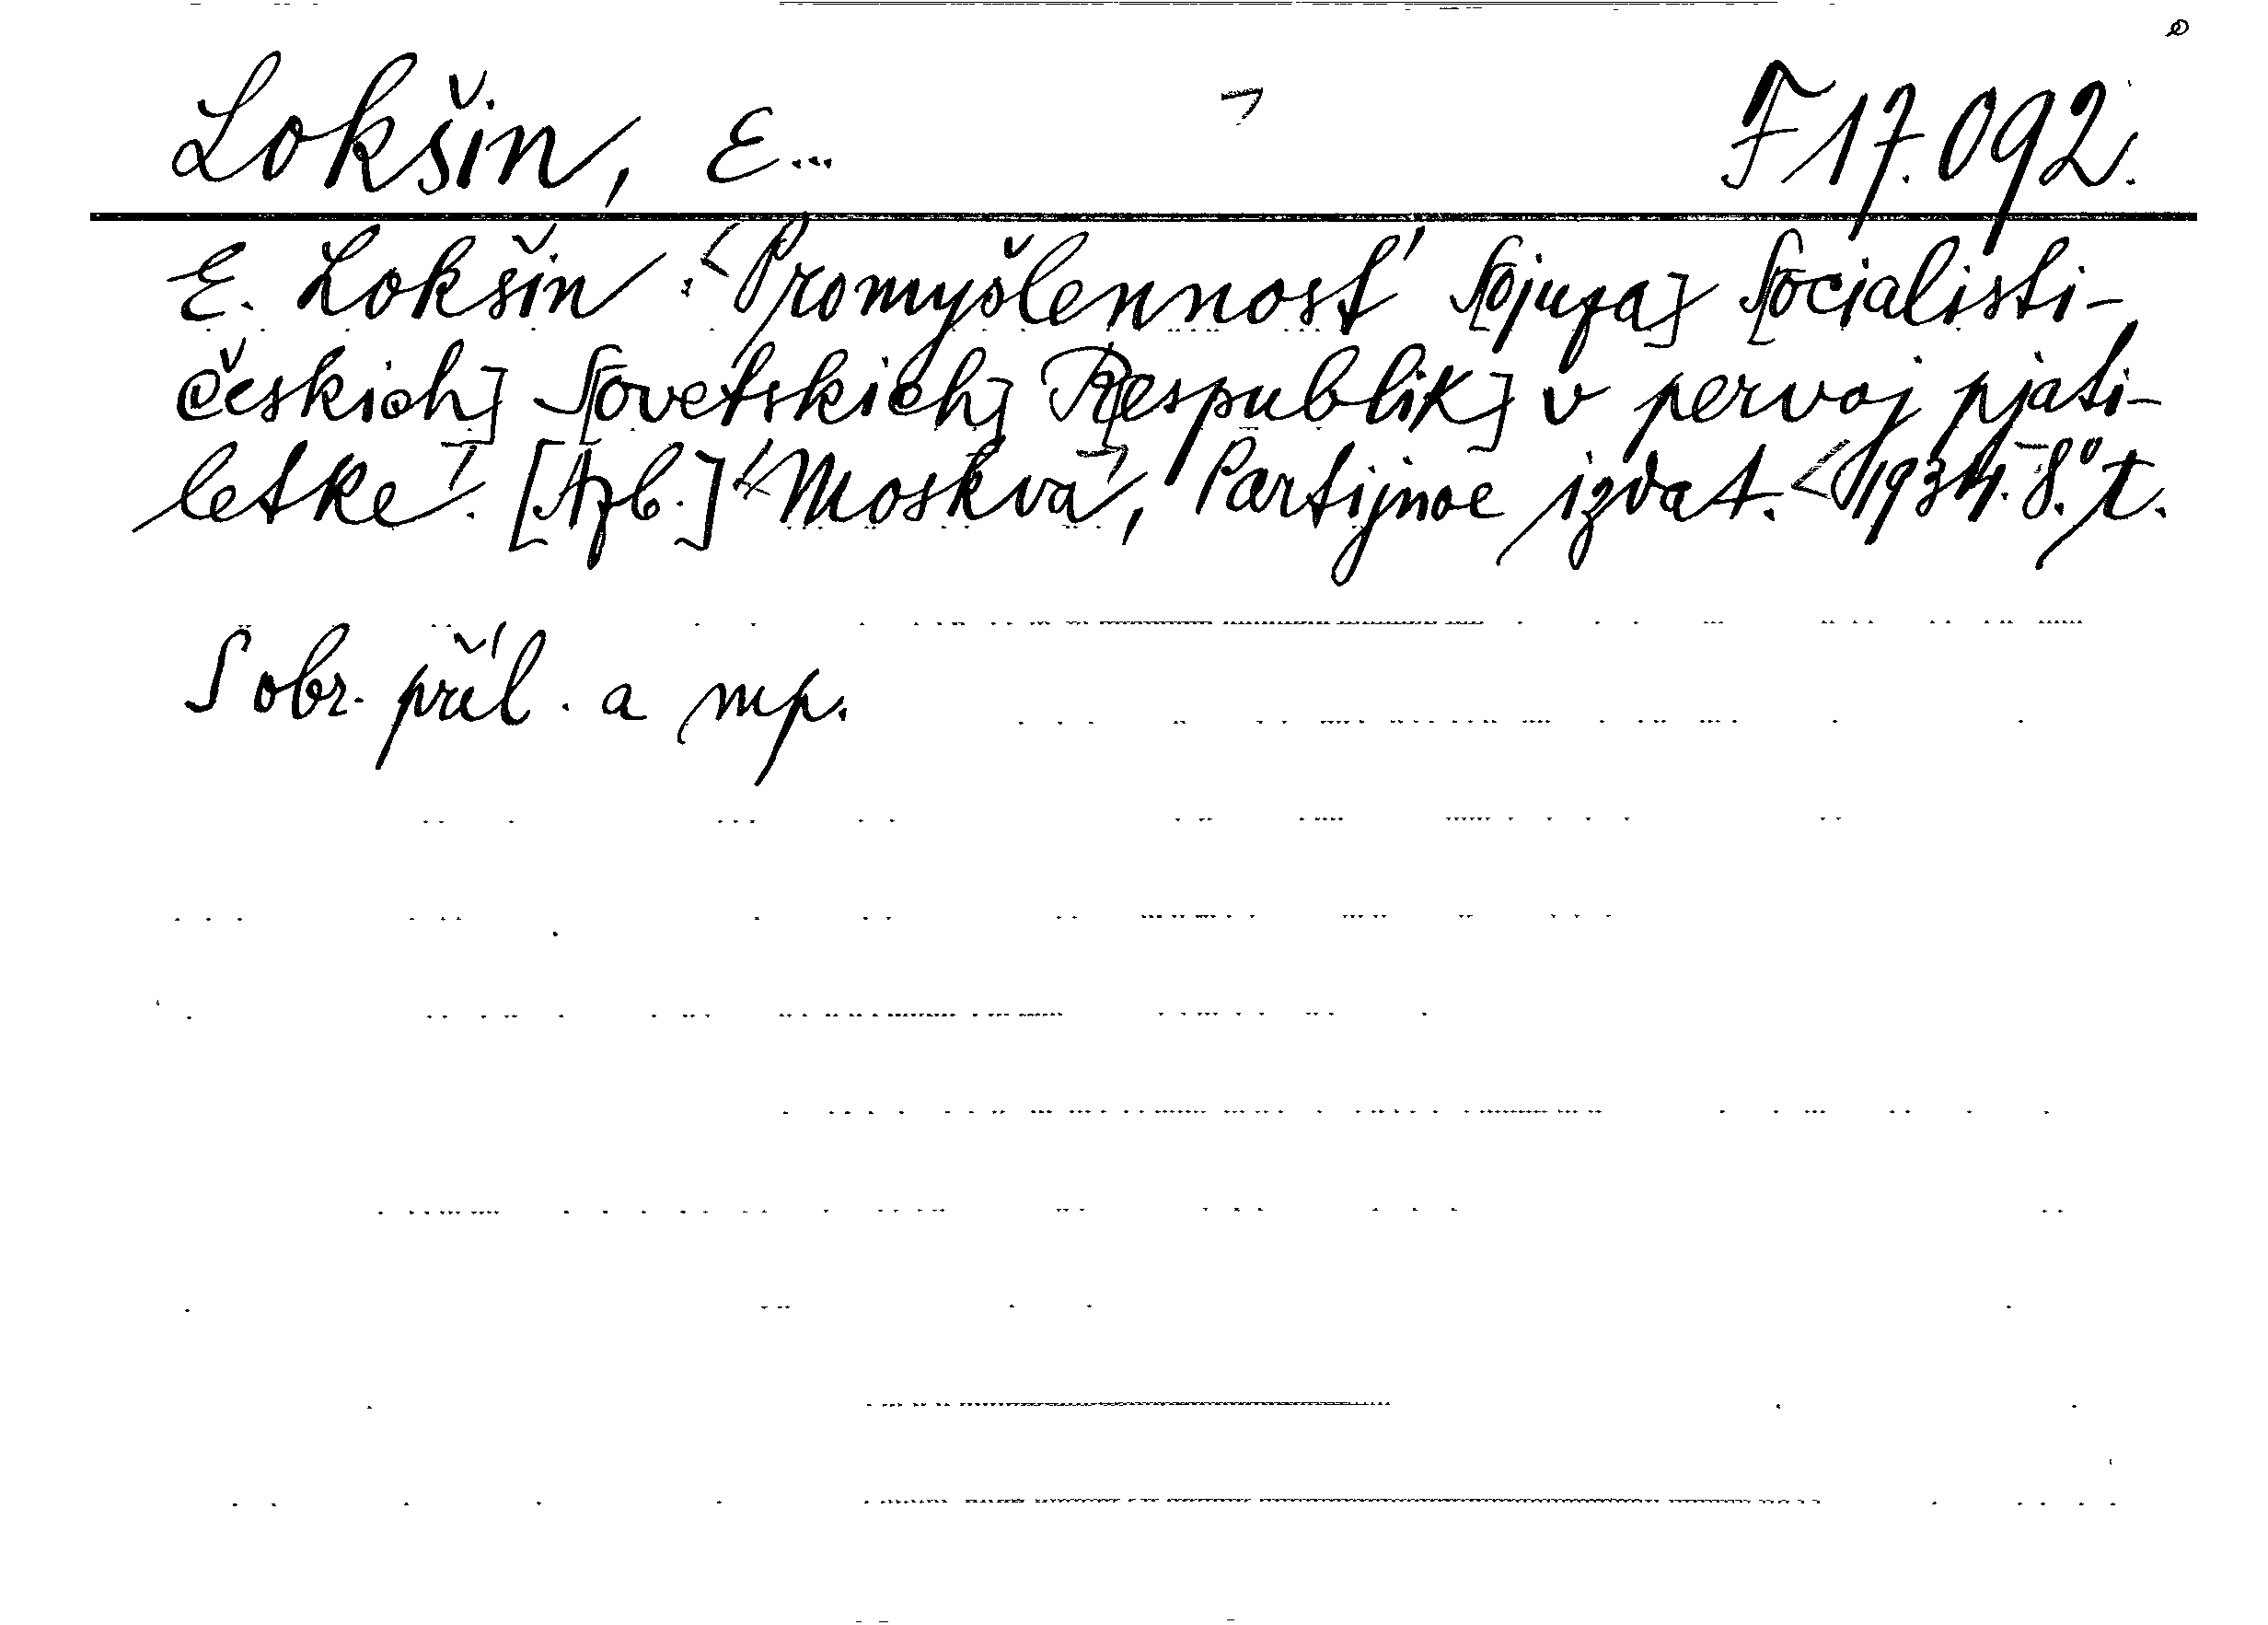 Lokšin, E... F 17.092.
E. Lokšin: Promyšlennost' S[ojuza] S[ocialisti-
českich] S[ovetskich] R[espublik] v pervoj pjati-
letke. [Azb.] Moskva, Partijnoe izdat. 1934. 8.° t.
S obr. příl. a mp.